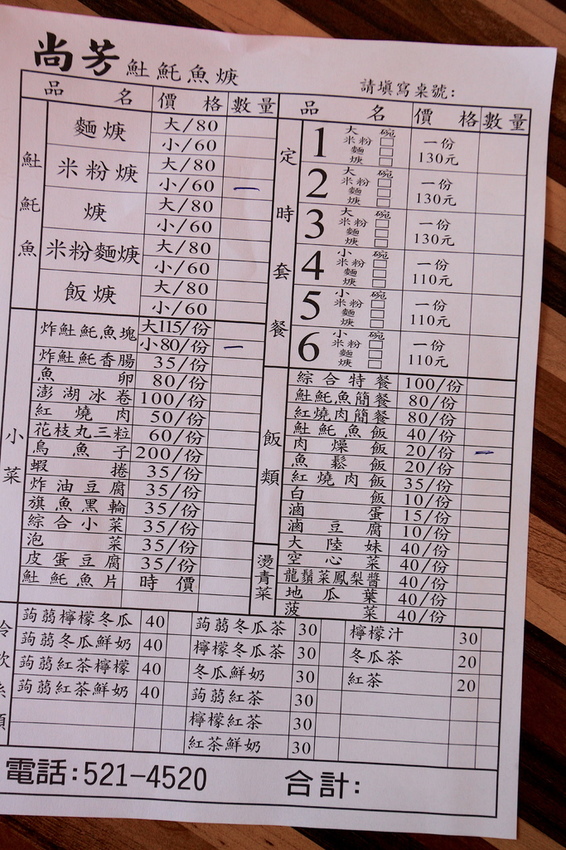 尚芳 𩵚魠魚焿
請填寫桌號：
品名 價格 數量
𩵚魠魚
麵焿 大/80
小/60
米粉焿 大/80
小/60 一
焿 大/80
小/60
米粉麵焿 大/80
小/60
飯焿 大/80
小/60
小菜
炸𩵚魠魚塊 大115/份
小80/份 一
炸𩵚魠香腸 35/份
魚卵 80/份
澎湖冰卷 100/份
紅燒肉 50/份
花枝丸三粒 60/份
烏魚子 200/份
蝦捲 35/份
炸油豆腐 35/份
旗魚黑輪 35/份
綜合小菜 35/份
泡菜 35/份
皮蛋豆腐 35/份
𩵚魠魚片 時價
品名 價格 數量
定時套餐
1 大碗 米粉□ 麵□ 焿□ 一份130元
2 大碗 米粉□ 麵□ 焿□ 一份130元
3 大碗 米粉□ 麵□ 焿□ 一份130元
4 小碗 米粉□ 麵□ 焿□ 一份110元
5 小碗 米粉□ 麵□ 焿□ 一份110元
6 小碗 米粉□ 麵□ 焿□ 一份110元
飯類
綜合特餐 100/份
𩵚魠魚簡餐 80/份
紅燒肉簡餐 80/份
𩵚魠魚飯 40/份
肉燥飯 20/份 一
魚鬆飯 20/份
紅燒肉飯 35/份
白飯 10/份
滷蛋 15/份
滷豆腐 10/份
燙青菜
大陸妹 40/份
空心菜 40/份
龍鬚菜鳳梨醬 40/份
地瓜葉 40/份
菠菜 40/份
冷飲系類
蒟蒻檸檬冬瓜 40
蒟蒻冬瓜鮮奶 40
蒟蒻紅茶檸檬 40
蒟蒻紅茶鮮奶 40
蒟蒻冬瓜茶 30
檸檬冬瓜茶 30
冬瓜鮮奶 30
蒟蒻紅茶 30
檸檬紅茶 30
紅茶鮮奶 30
檸檬汁 30
冬瓜茶 20
紅茶 20
電話：521-4520
合計：